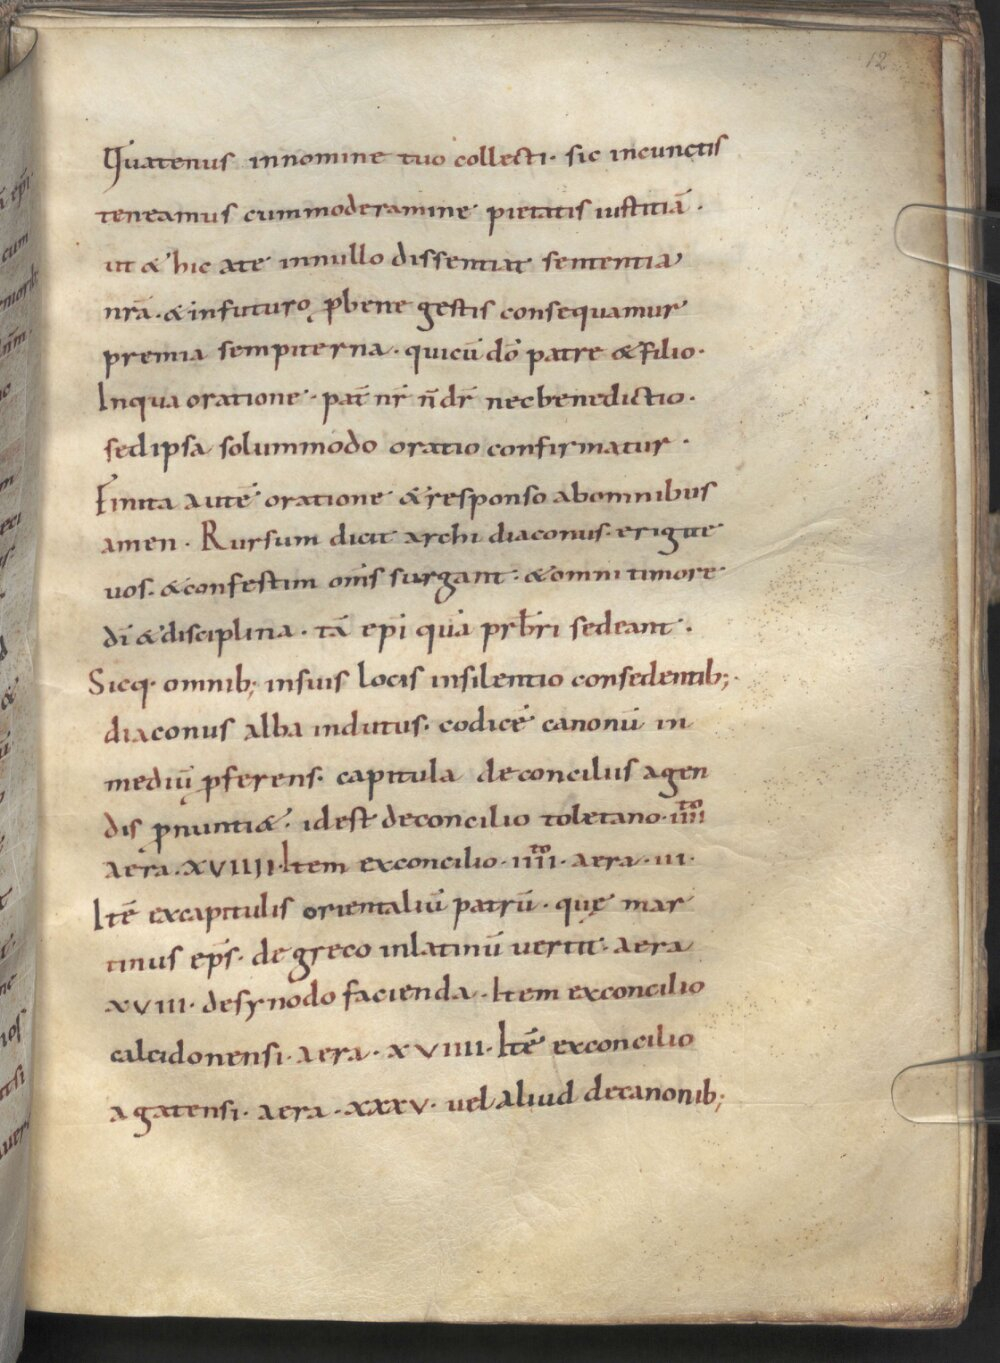 12
Quatenus innomine tuo collecti· sic incunctis
teneamus cummoderamine pietatis iustitiā·
ut & hic ate innullo dissentiat sententia
nrā·&infuturo ꝓbene gestis consequamur
premia sempiterna·quicū dō patre &filio·
Inqua oratione· pat̄ nr̄ n̄ dr̄ necbenedictio·
sedipsa solummodo oratio confirmatur·
Finita autē oratione &responso abomnibus
amen· Rursum dicit archi diaconus·erigite
uos·&confestim om̄s surgant·&omni timore
dī &disciplina· tā epi quā prb̄ri sedeant·
Sicq· omnib; insuis locis insilentio consedentib;·
diaconus alba indutus· codicē canonū in
mediū ꝓferens· capitula deconciliis agen
dis ꝓnunti&· idest deconcilio toletano·iiii to
aera·xviiii·Item exconcilio·iiii to·aera·iii·
Itē excapitulis orientaliū patrū·quę mar
tinus ep̄s· de greco inlatinū uertit·aera
xviii·desynodo facienda·Item exconcilio
calcidonensi·aera·xviiii·Itē exconcilio
agatensi·aera·xxxv·uel aliud decanonib;